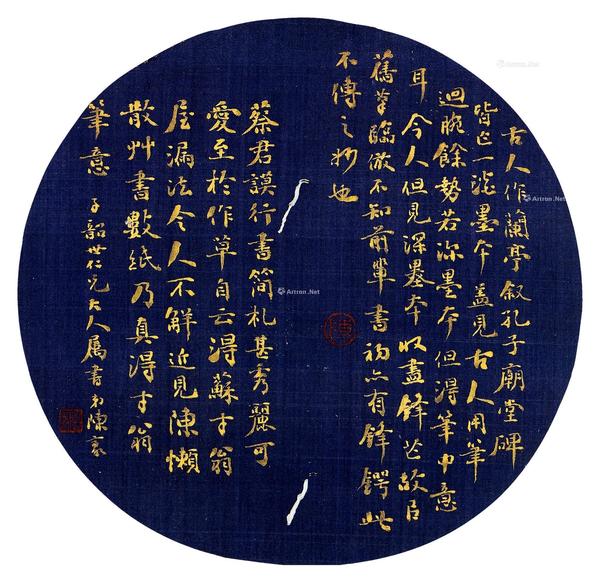 古人作蘭亭敘孔子廟堂碑
皆作一淡墨本蓋見古人用筆
迴腕餘勢若深墨本但得筆中意
耳今人但見深墨本收盡鋒芒故以
舊筆臨倣不知前輩書初亦有鋒鍔此
不傳之妙也
蔡君謨行書簡札甚秀麗可
愛至於作草自云得蘇才翁
屋漏法令人不解近見陳懶
散艸書數紙乃真得才翁
筆意 子韶世仁兄大人屬書弟陳
Artron.Net
Artron.Net
Artron.Net
Artron.Net